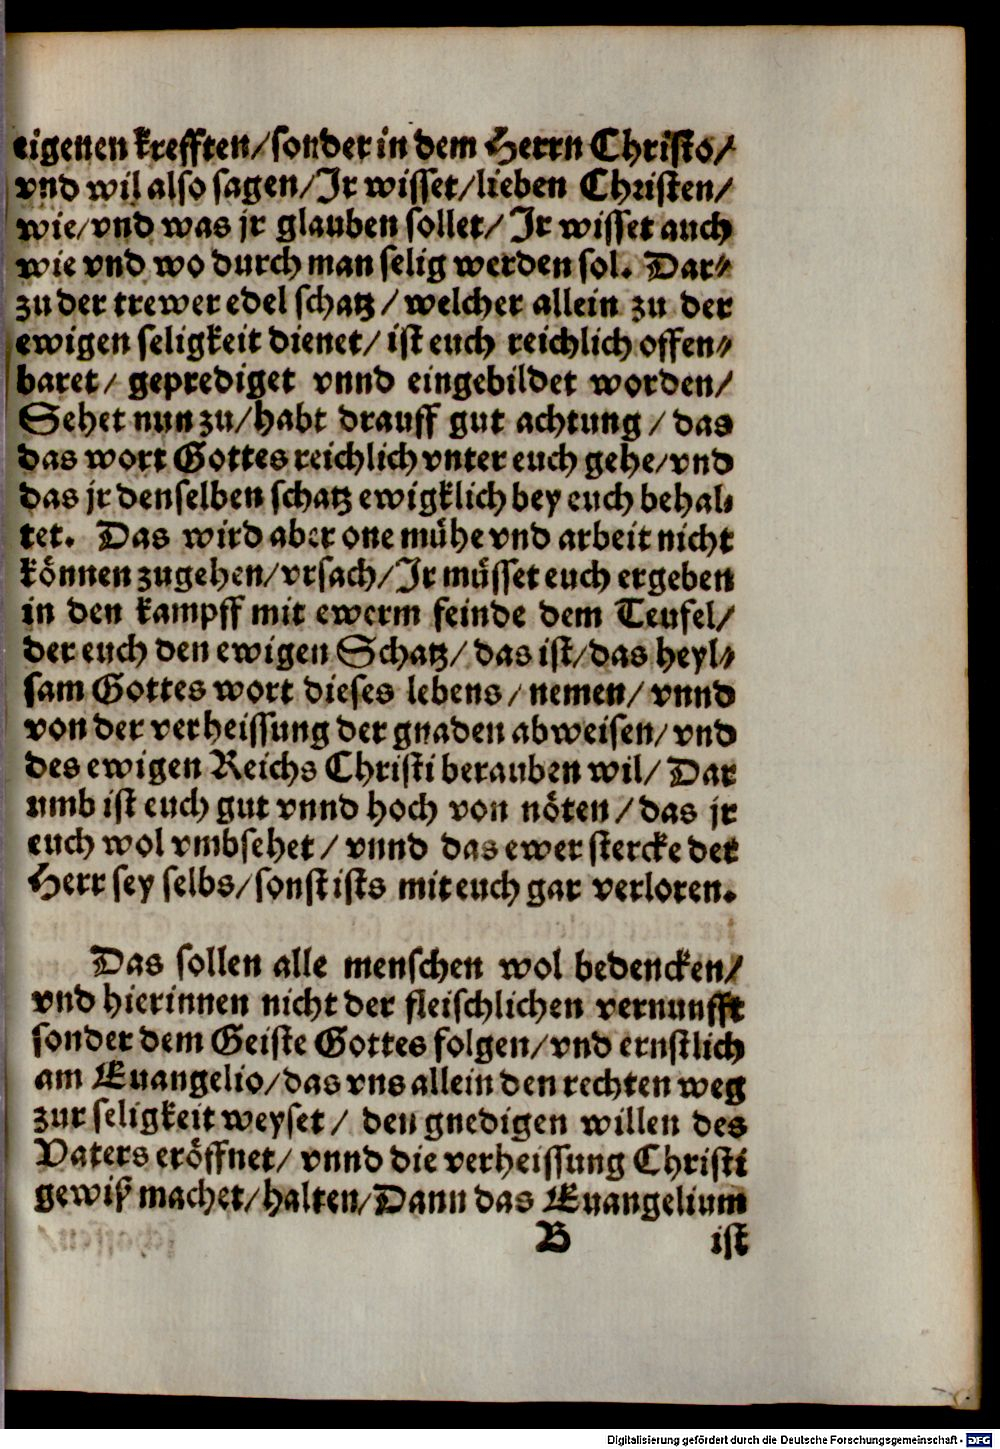 eigenen krefften/sonder in dem Herrn Christo/
vnd wil also sagen/Jr wisset/lieben Christen/
wie/vnd was jr glauben sollet/ Jr wisset auch
wie vnd wo durch man selig werden sol. Dar⸗
zu der trewer edel schatz/ welcher allein zu der
ewigen seligkeit dienet/ ist euch reichlich offen⸗
baret/ geprediget vnnd eingebildet worden/
Sehet nun zu/habt drauff gut achtung/ das
das wort Gottes reichlich vnter euch gehe/vnd
das jr denselben schatz ewigklich bey euch behal⸗
tet. Das wird aber one mühe vnd arbeit nicht
können zugehen/vrsach/Jr müsset euch ergeben
in den kampff mit ewerm feinde dem Teufel/
der euch den ewigen Schatz/ das ist/das heyl⸗
sam Gottes wort dieses lebens/ nemen/ vnnd
von der verheissung der gnaden abweisen/ vnd
des ewigen Reichs Christi berauben wil/ Dar
umb ist euch gut vnnd hoch von nöten/ das jr
euch wol vmbsehet/ vnnd das ewer stercke der
Herr sey selbs/ sonst ists mit euch gar verloren.
Das sollen alle menschen wol bedencken/
vnd hierinnen nicht der fleischlichen vernunfft
sonder dem Geiste Gottes folgen/vnd ernstlich
am Euangelio/das vns allein den rechten weg
zur seligkeit weyset/ den gnedigen willen des
Vaters eröffnet/ vnnd die verheissung Christi
gewiß machet/halten/Dann das Euangelium
B ist
Digitalisierung gefördert durch die Deutsche Forschungsgemeinschaft - DFG